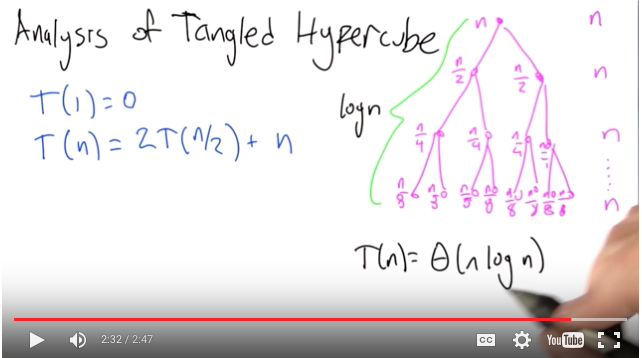 Analysis of Tangled Hypercube
T(1) = 0
T(n) = 2T(n/2) + n
log n
n n
n/2 n/2 n
n/4 n/4 n/4 n
n/8 n/8 n/8 n/8 n/8 n/8 n
T(n) = Θ(n log n)
2:32 / 2:47
CC
YouTube